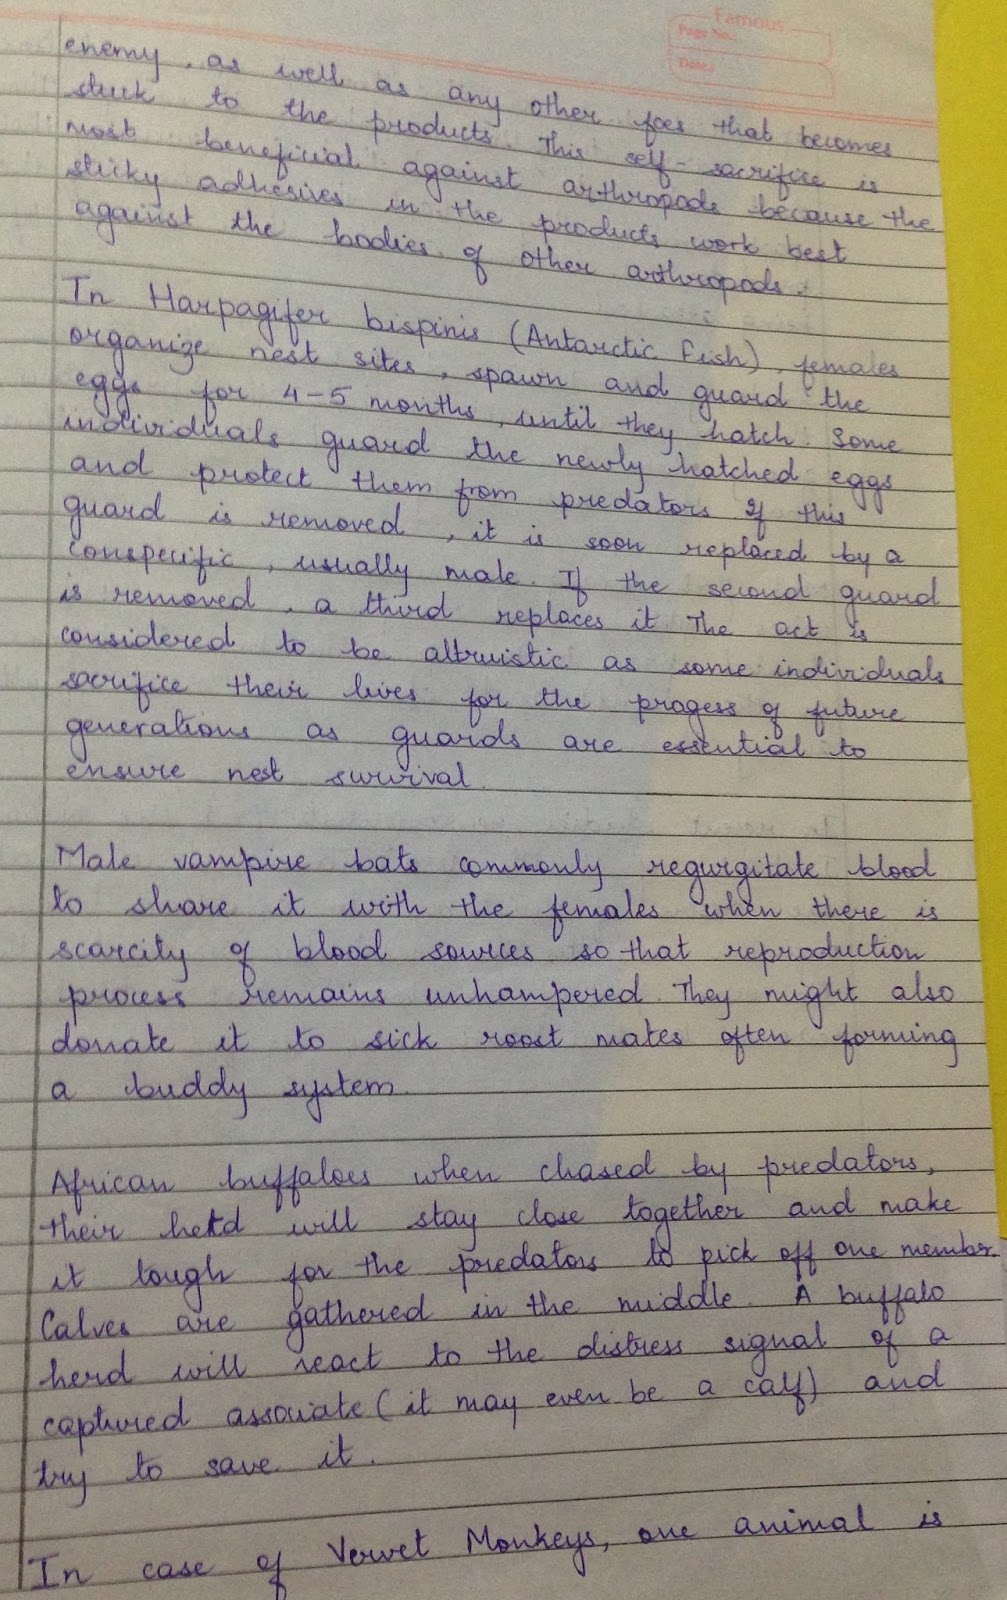 Famous
Page No.:
Date:
enemy, as well as any other foes that becomes
stuck to the products. This self-sacrifice is
most beneficial against arthropods because the
sticky adhesives in the products work best
against the bodies of other arthropods.
In Harpagifer bispinis (Antarctic Fish), females
organize nest sites, spawn and guard the
eggs for 4-5 months, until they hatch. Some
individuals guard the newly hatched eggs
and protect them from predators If this
guard is removed, it is soon replaced by a
conspecific, usually male. If the second guard
is removed, a third replaces it The act is
considered to be altruistic as some individuals
sacrifice their lives for the progess of future
generations as guards are essential to
ensure nest survival.
Male vampire bats commonly regurgitate blood
to share it with the females when there is
scarcity of blood sources so that reproduction
process remains unhampered. They might also
donate it to sick roost mates often forming
a buddy system.
African buffaloes when chased by predators,
their herd will stay close together and make
it tough for the predators to pick off one member.
Calves are gathered in the middle. A buffalo
herd will react to the distress signal of a
captured associate (it may even be a calf) and
try to save it.
In case of Vervet Monkeys, one animal is